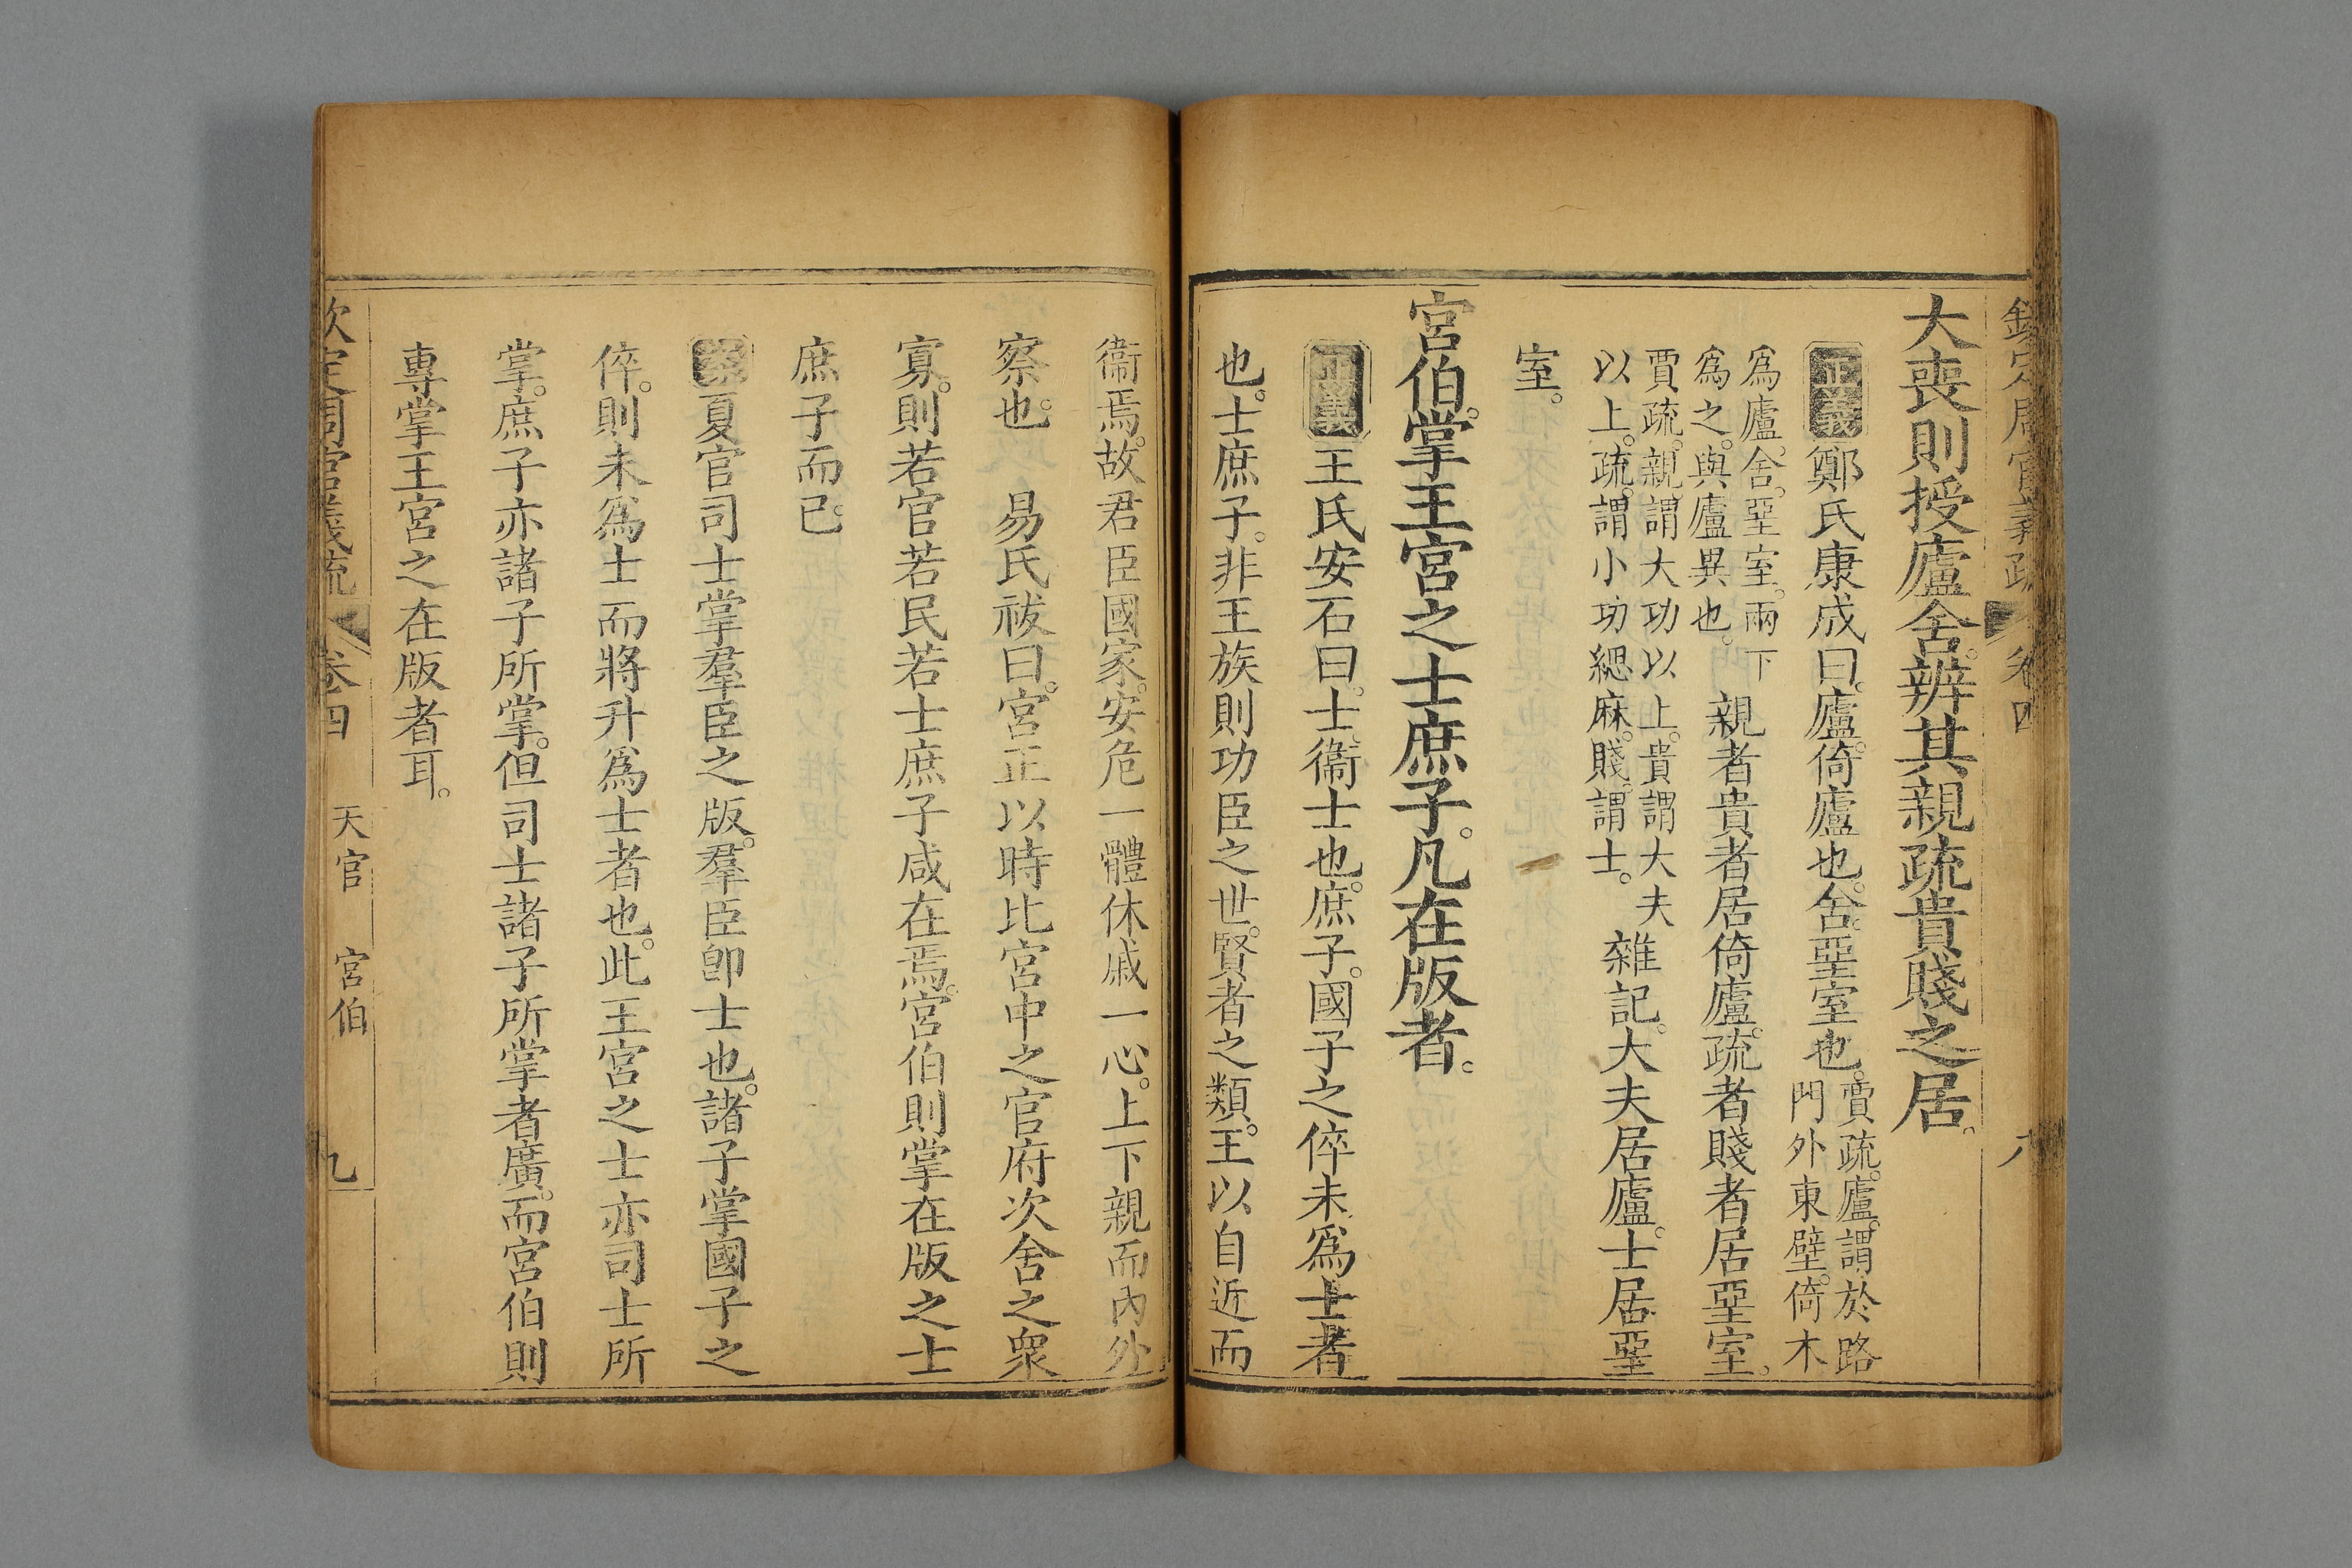 欽定周官義疏 卷四 八
大喪則授廬舍。辨其親疏貴賤之居。
正義 鄭氏康成曰。廬。倚廬也。舍。堊室也。賈疏。廬。謂於路門外東壁。倚木
爲廬。舍。堊室。兩下爲之。與廬異也。 親者貴者居倚廬。疏者賤者居堊室。
賈疏。親。謂大功以上。貴。謂大夫以上。疏。謂小功緦麻。賤。謂士。 雜記。大夫居廬。士居堊
室。
宮伯。掌王宮之士庶子。凡在版者。
正義 王氏安石曰。士。衞士也。庶子。國子之倅未爲士者
也。士庶子。非王族則功臣之世。賢者之類。王以自近而
衞焉。故君臣國家。安危一體。休戚一心。上下親而內外
察也。 易氏祓曰。宮正以時比宮中之官府次舍之衆
寡。則若官若民若士庶子咸在焉。宮伯則掌在版之士
庶子而已。
案 夏官司士掌羣臣之版。羣臣卽士也。諸子掌國子之
倅。則未爲士而將升爲士者也。此王宮之士亦司士所
掌。庶子亦諸子所掌。但司士諸子所掌者廣。而宮伯則
專掌王宮之在版者耳。
欽定周官義疏 卷四 天官 宮伯 九